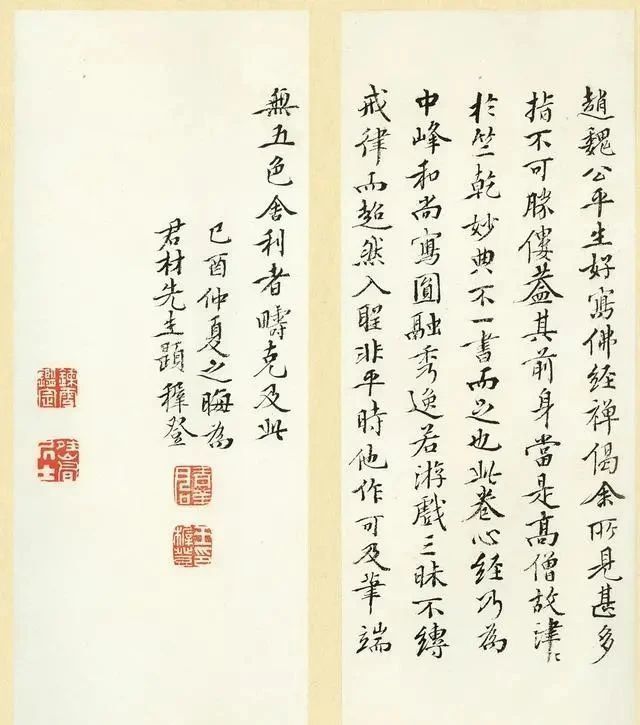 趙魏公平生好寫佛經禅偈余所見甚多
指不可勝僂葢其前身當是髙僧故津〻
扵竺乾妙典不一書而足也此卷心經乃為
中峰和尚寫圓融秀逸若游戲三昧不縳
戒律而超然入聖非平時他作可及筆端
無五色舍利者疇克及此
己酉仲夏之晦為
君材先生題穉登
王穉登印